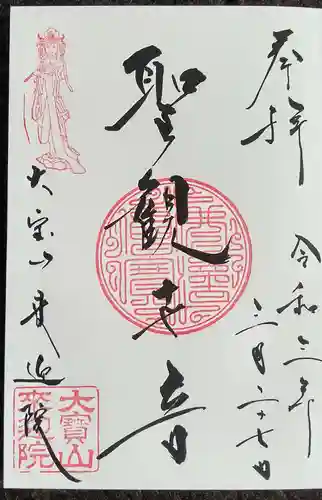 奉拝
令和三年
三月二十七日
聖観世音
大宝山
院
大寶山
来迎院